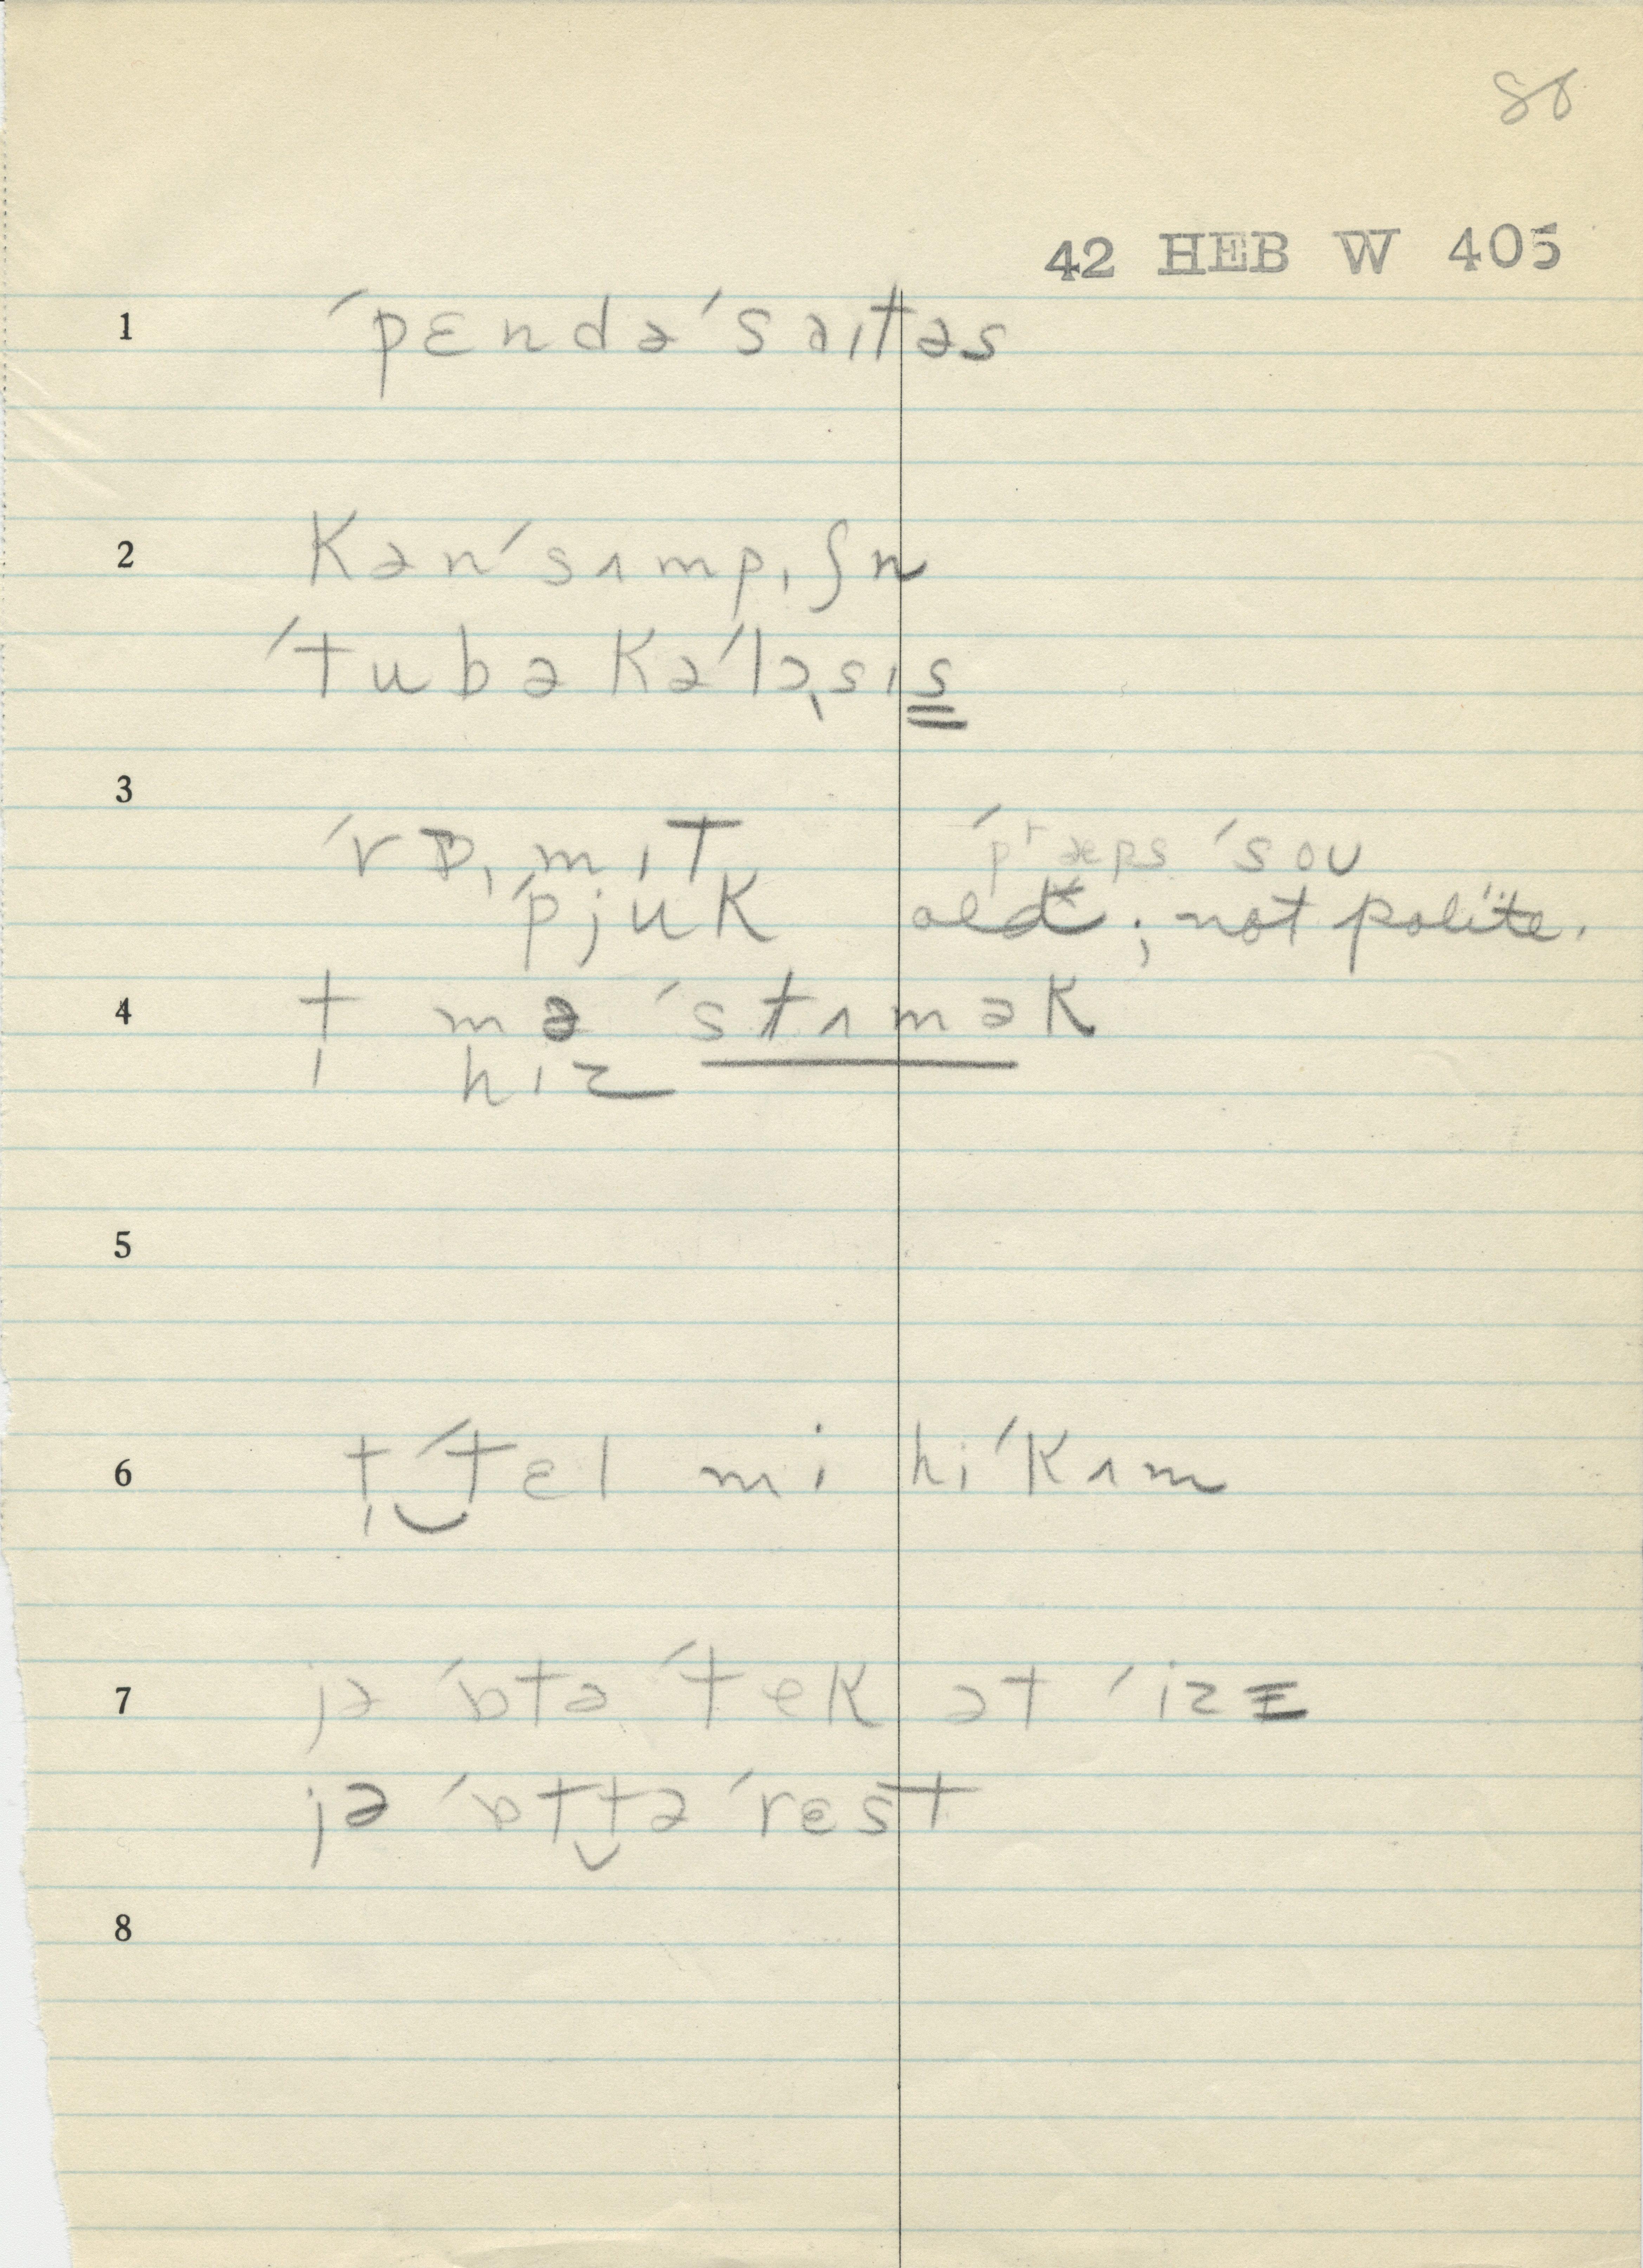 80
42 HEB W 405
1 ˈpɛndəˈsaɪtəs
2 kənˈsʌmpɪʃn
ˈtubəkəˈlə̣sɪs
3 ˈrɒ̣mɪt ˈpræps ˈsoʊ
ˈpjuk old; not polite.
4 t mə ˈstʌmək
ɪ hɪz
5
6 tɪ‿ˈtɛl mi hiˈkʌm
7 jə ˈɒtə ˈtek ət ˈizɪ
jə ˈɒt‿tə ˈrɛst
8